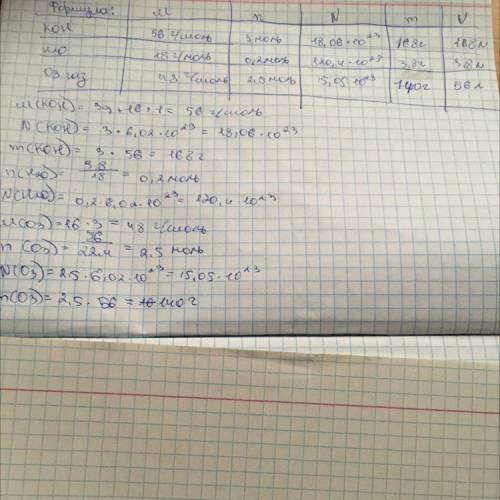 Формула: M n N m V
KOH 56 г/моль 3 моль 18,06•10²³ 168г 168л
H₂O 18 г/моль 0,2моль 120,4•10²³ 3,8г 3,8л
O3 газ 48 г/моль 2,5 моль 15,05•10²³ 140г 56л
M(KOH) = 39+16+1= 56 г/моль
N(KOH) = 3•6,02•10²³ = 18,06•10²³
m(KOH) = 3 • 56 = 168г
n(H₂O) = 3,8/18 = 0,2моль
N(H₂O) = 0,2•6,02•10²³ = 120,4 10²³
M(O3) = 16•3 = 48 г/моль
n (O3) = 56/22.4 = 2,5 моль
N(O3) = 2,5•6,02•10²³ = 15,05•10²³
m(O3) = 2,5 • 56 = 140г